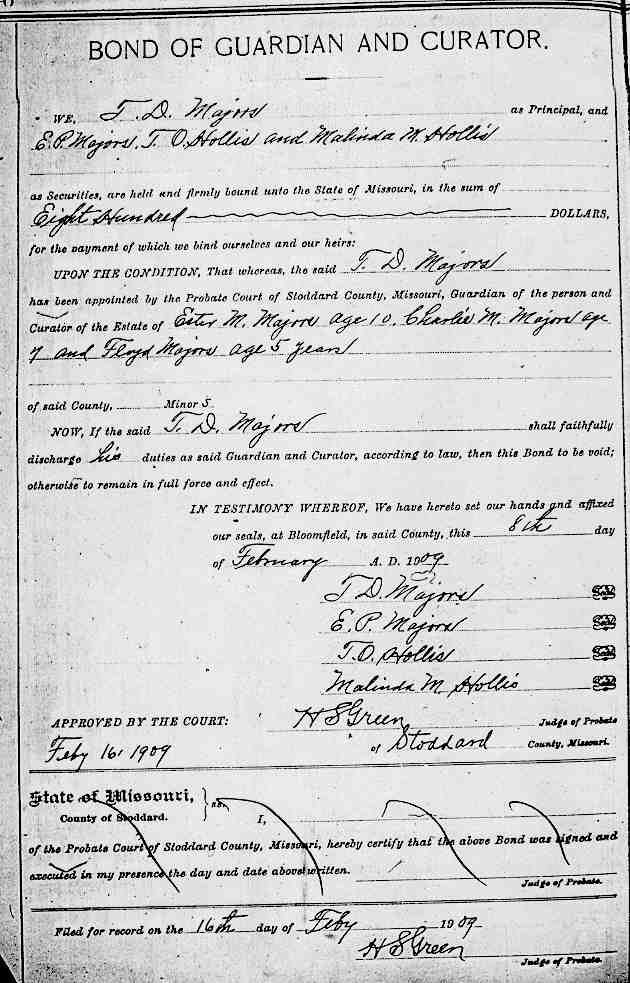 BOND OF GUARDIAN AND CURATOR.
WE, T. D. Majors as Principal, and
E. P. Majors, T. O. Hollis and Malinda M. Hollis
as Securities, are held and firmly bound unto the State of Missouri, in the sum of
Eight Hundred DOLLARS,
for the payment of which we bind ourselves and our heirs:
UPON THE CONDITION, That whereas, the said T. D. Majors
has been appointed by the Probate Court of Stoddard County, Missouri, Guardian of the person and
Curator of the Estate of Ester M. Majors age 10, Charlie M. Majors age
7 and Floyd Majors age 5 years
of said County, Minor s
NOW, If the said T. D. Majors shall faithfully
discharge his duties as said Guardian and Curator, according to law, then this Bond to be void;
otherwise to remain in full force and effect.
IN TESTIMONY WHEREOF, We have hereto set our hands and affixed
our seals, at Bloomfield, in said County, this 8th day
of February A. D. 1909
T. D. Majors Seal
E. P. Majors Seal
T. O. Hollis Seal
Malinda M Hollis Seal
APPROVED BY THE COURT: H S Green Judge of Probate
Feby 16, 1909 of Stoddard County, Missouri.
State of Missouri,
County of Stoddard. I,
of the Probate Court of Stoddard County, Missouri, hereby certify that the above Bond was signed and
executed in my presence the day and date above written.
Judge of Probate.
Filed for record on the 16th day of Feby 1909
H S Green
Judge of Probate.